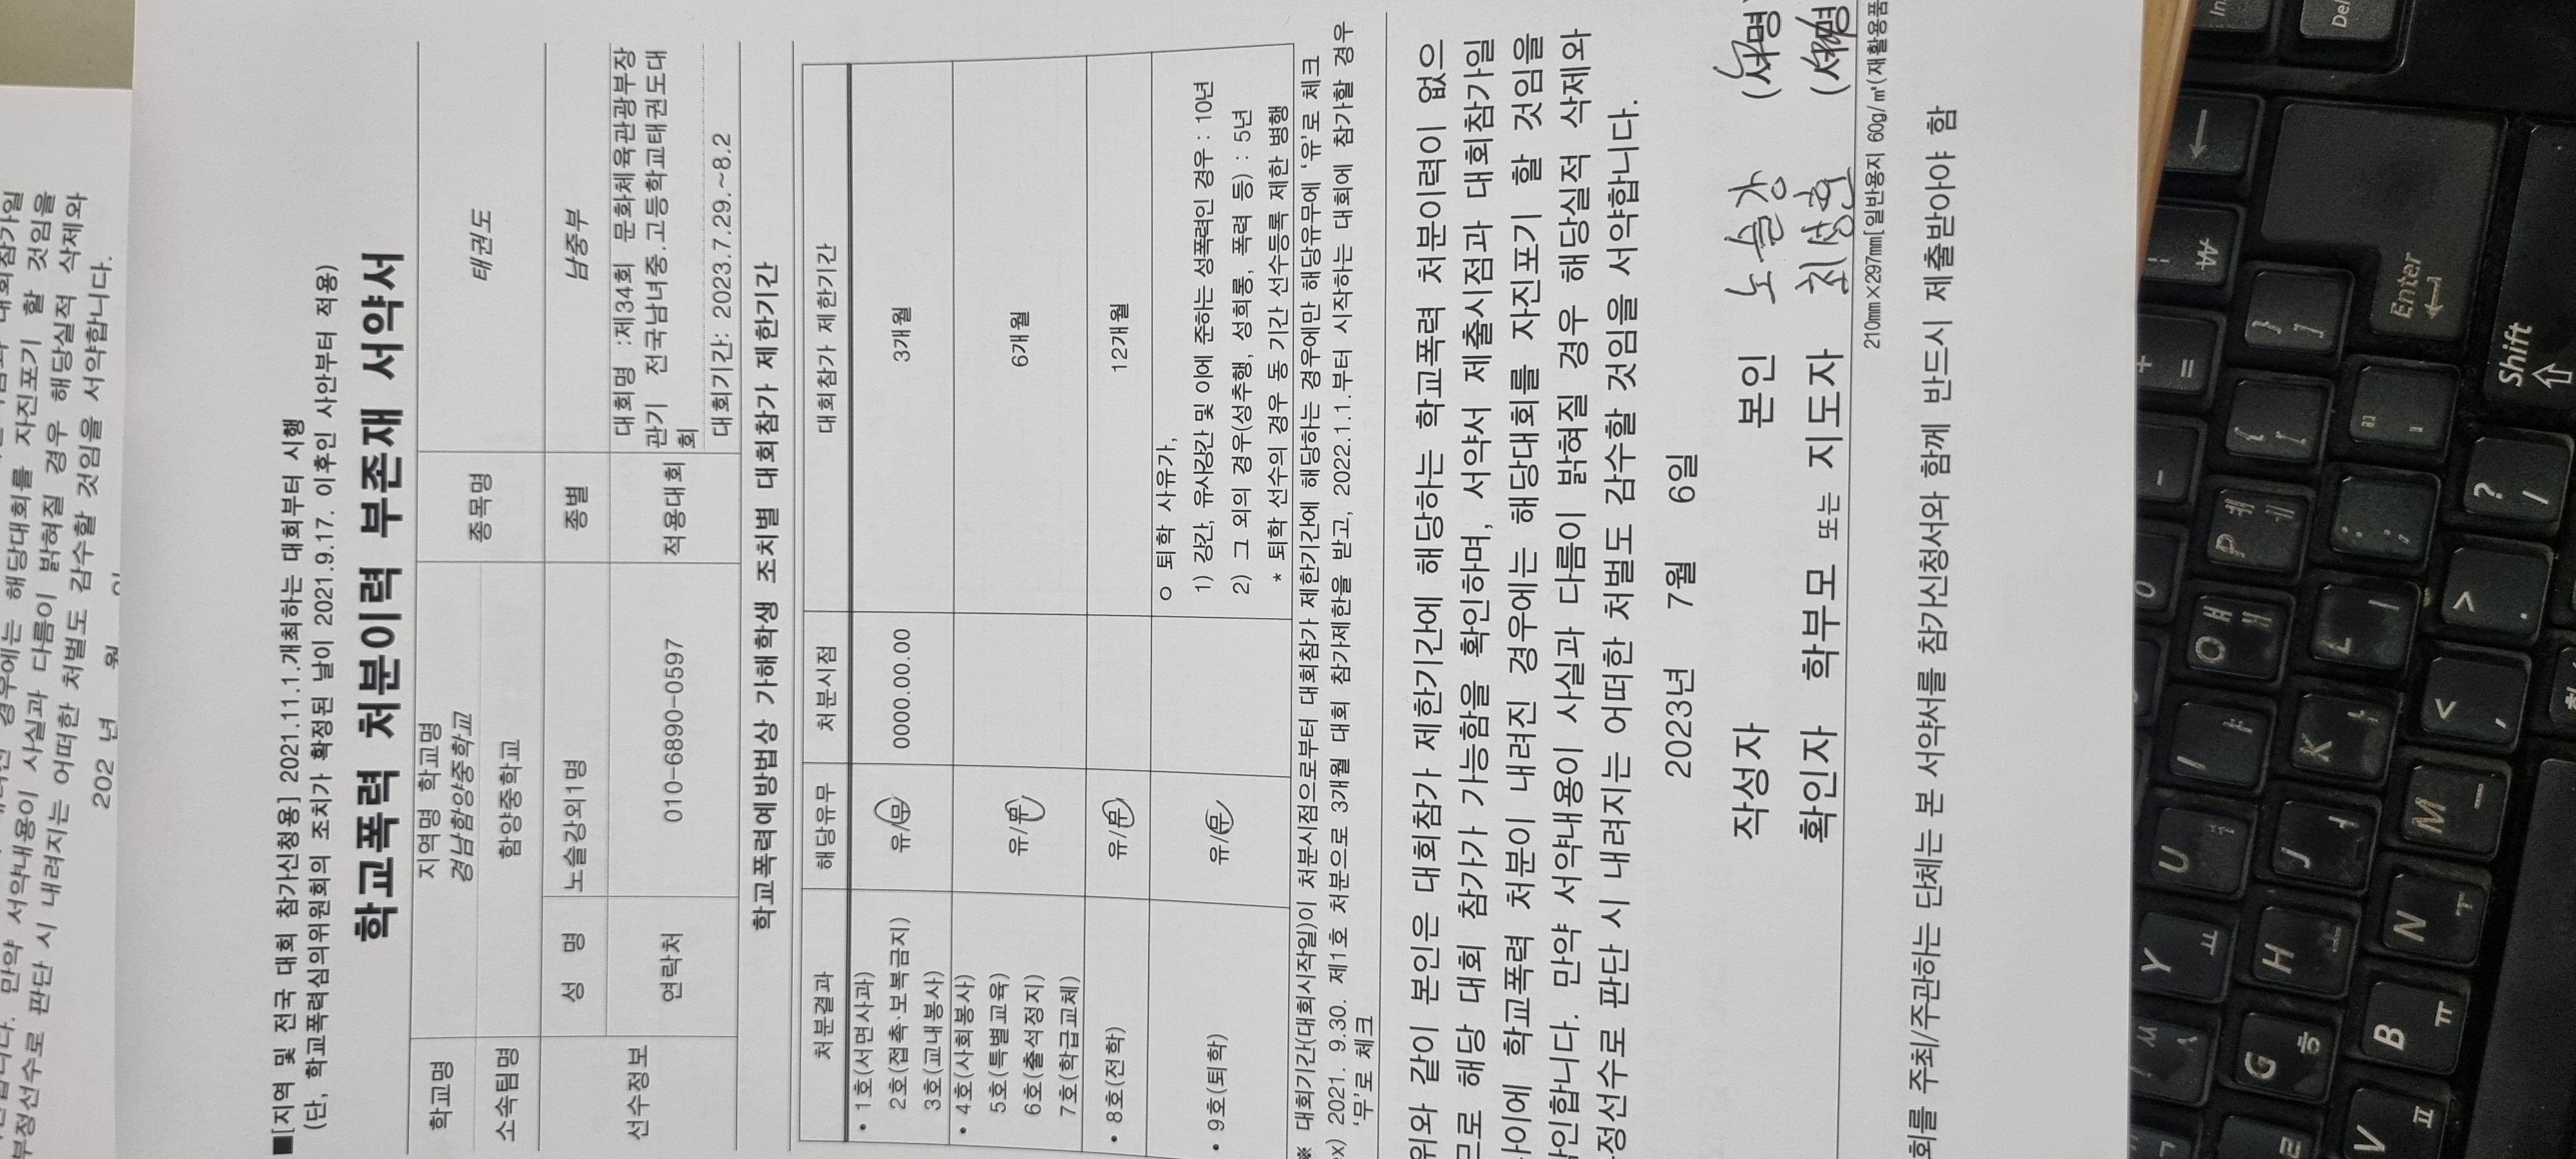 ■[지역 및 전국 대회 참가신청용] 2021.11.1.개최하는 대회부터 시행
(단, 학교폭력심의위원회의 조치가 확정된 날이 2021.9.17. 이후인 사안부터 적용)
학교폭력 처분이력 부존재 서약서
학교명
지역명 학교명
경남함양중학교
종목명
태권도
소속팀명
함양중학교
선수정보
성 명
노슬강외1명
종별
남중부
연락처
010-6890-0597
적용대회
대회명 :제34회 문화체육관광부장
관기 전국남녀중.고등학교태권도대
회
대회기간: 2023.7.29.~8.2
학교폭력예방법상 가해학생 조치별 대회참가 제한기간
처분결과 해당유무 처분시점 대회참가 제한기간
• 1호(서면사과)
2호(접촉·보복금지)
3호(교내봉사)
유/무 0000.00.00 3개월
• 4호(사회봉사)
5호(특별교육)
6호(출석정지)
7호(학급교체)
유/무 6개월
• 8호(전학) 유/무 12개월
• 9호(퇴학) 유/무
ㅇ 퇴학 사유가,
1) 강간, 유사강간 및 이에 준하는 성폭력인 경우 : 10년
2) 그 외의 경우(성추행, 성희롱, 폭력 등) : 5년
* 퇴학 선수의 경우 동 기간 선수등록 제한 병행
※ 대회기간(대회시작일)이 처분시점으로부터 대회참가 제한기간에 해당하는 경우에만 해당유무에 '유'로 체크
ex) 2021. 9.30. 제1호 처분으로 3개월 대회 참가제한을 받고, 2022.1.1.부터 시작하는 대회에 참가할 경우
'무'로 체크
위와 같이 본인은 대회참가 제한기간에 해당하는 학교폭력 처분이력이 없으
므로 해당 대회 참가가 가능함을 확인하며, 서약서 제출시점과 대회참가일
사이에 학교폭력 처분이 내려진 경우에는 해당대회를 자진포기 할 것임을
확인합니다. 만약 서약내용이 사실과 다름이 밝혀질 경우 해당실적 삭제와
부정선수로 판단 시 내려지는 어떠한 처벌도 감수할 것임을 서약합니다.
2023년 7월 6일
작성자 본인 노슬강 (서명)
확인자 학부모 또는 지도자 최성환 (서명)
210mm×297mm[일반용지 60g/㎡(재활용품
회를 주최/주관하는 단체는 본 서약서를 참가신청서와 함께 반드시 제출받아야 함